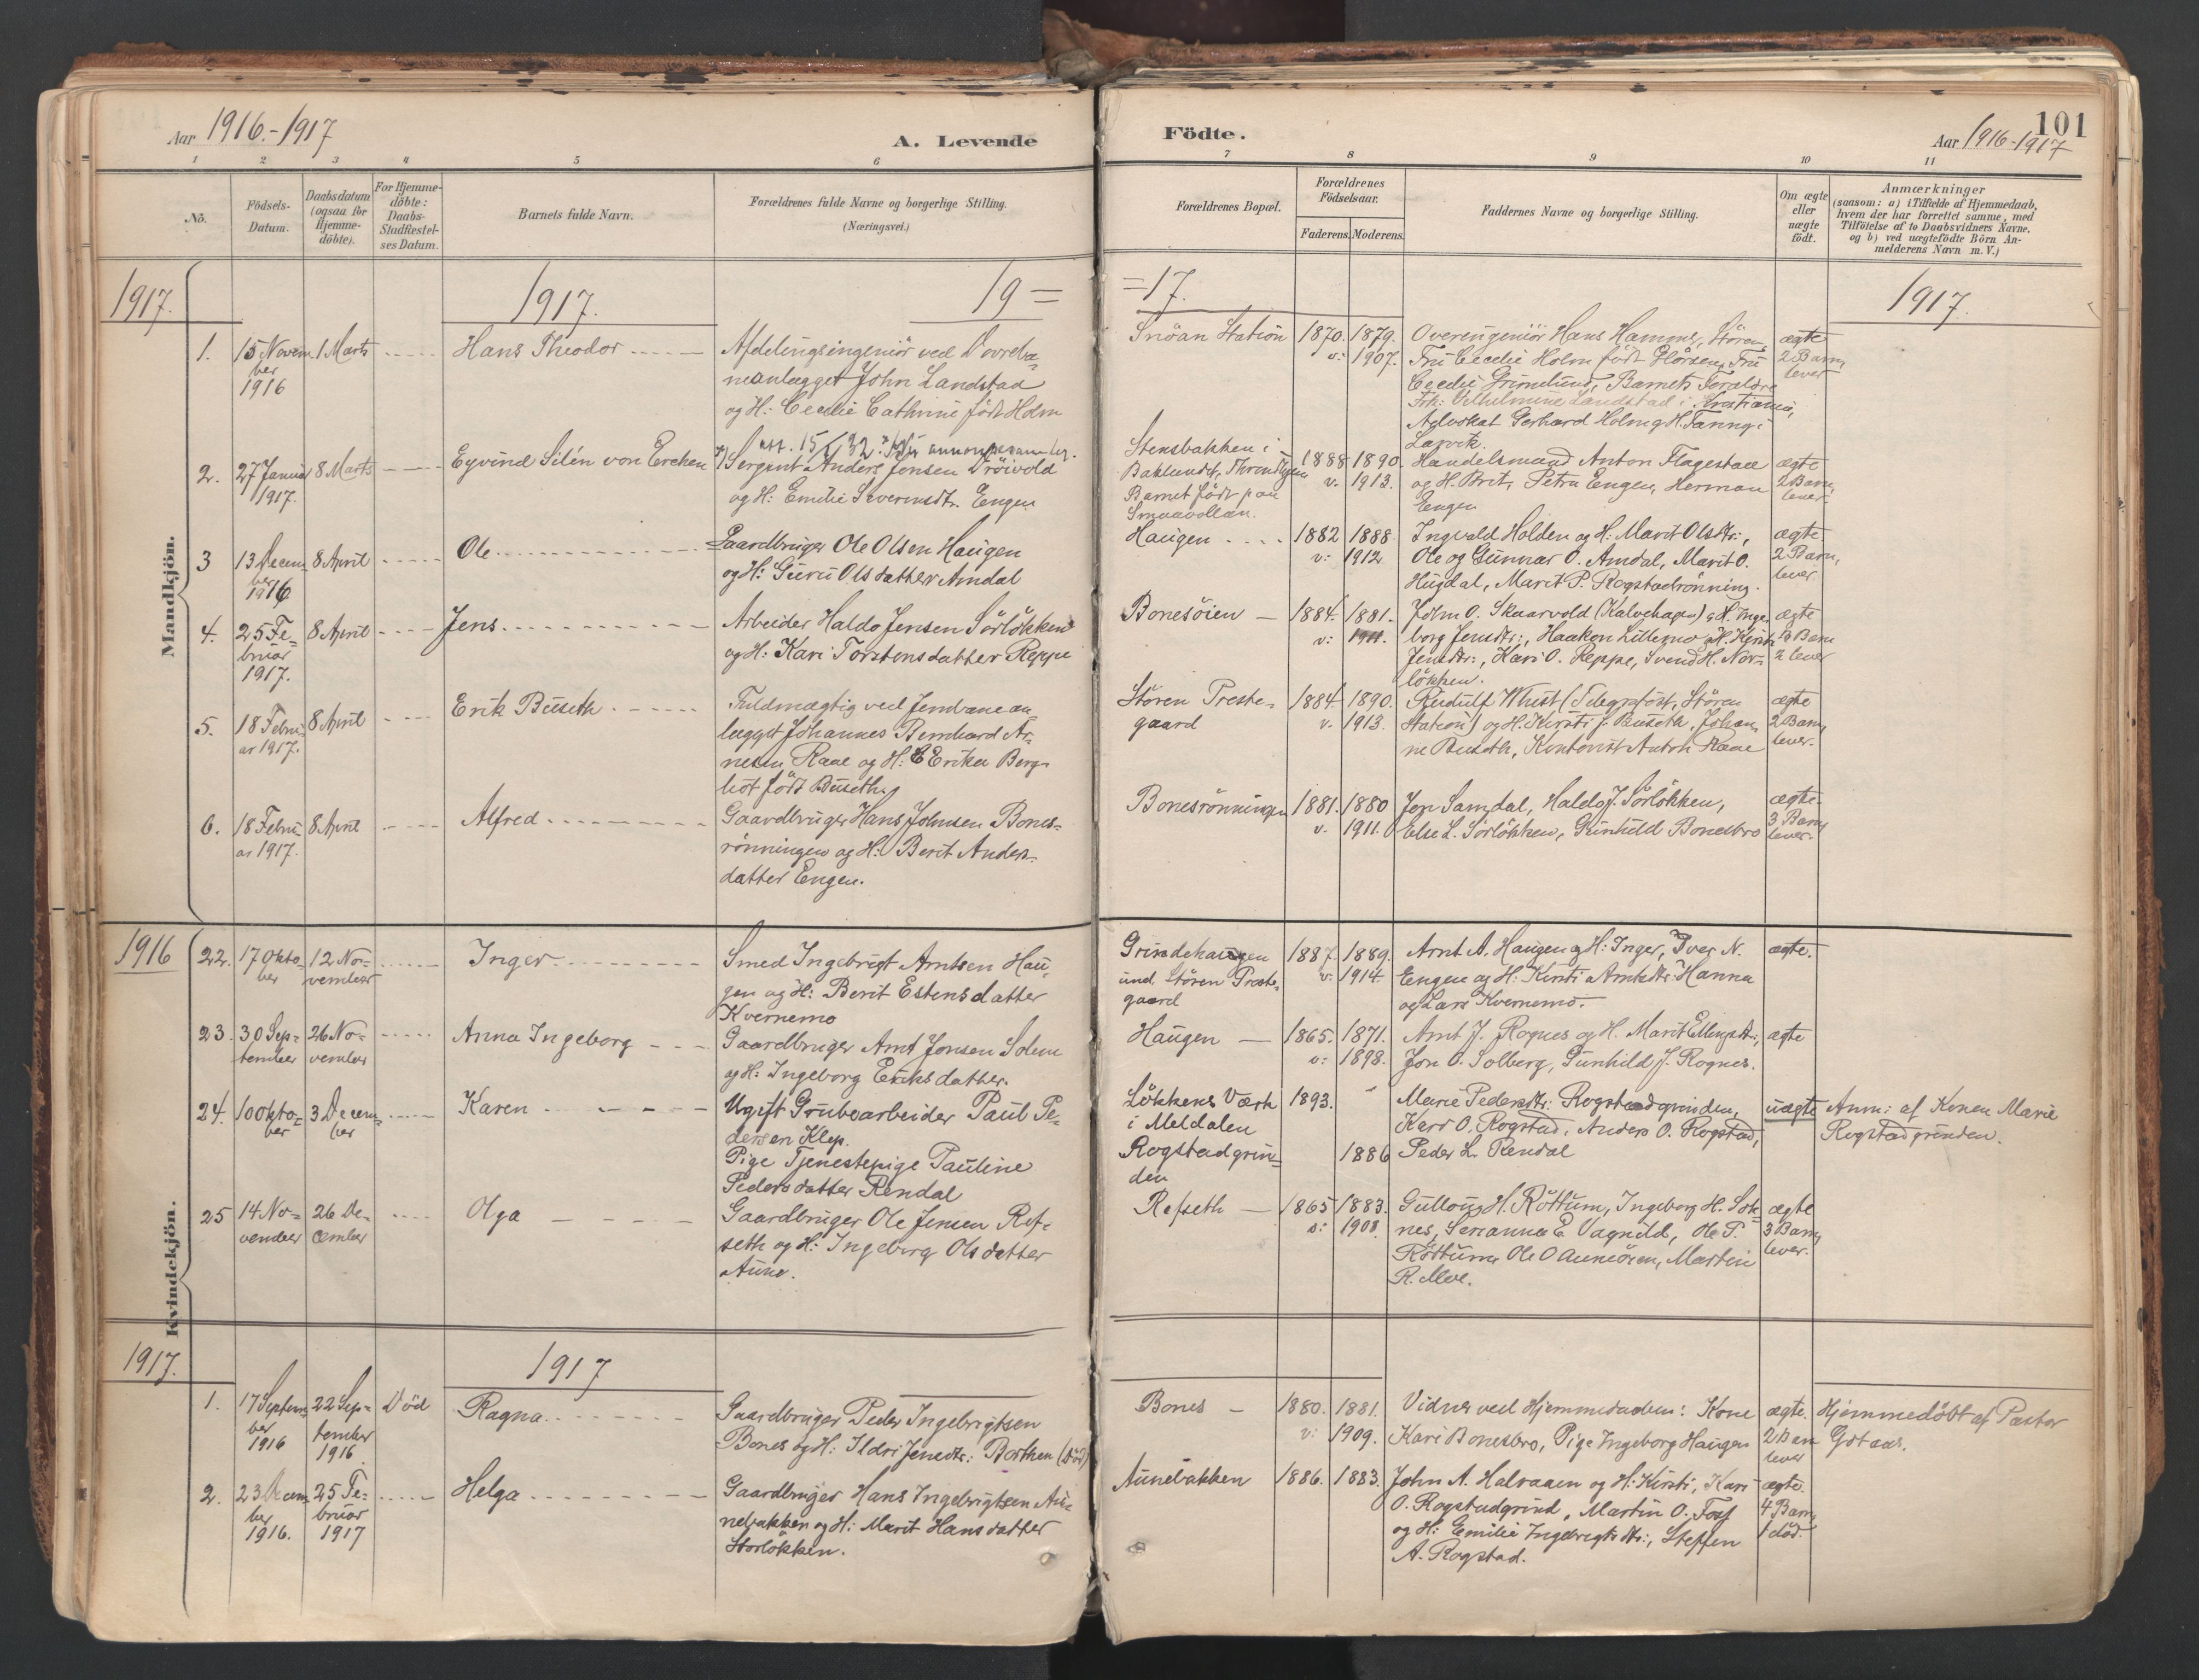 Aar 1916.-1917
A. Levende
Födte.
Aar 1916-1917
101
1 2 3 4 5 6
7 8 9 10 11
Nö.
Födsels-
Datum.
Daabsdatum
(ogsaa for
Hjemme-
döbte).
For Hjemme-
döbte:
Daabs-
Stadfestel-
ses Datum.
Barnets fulde Navn.
Forældrenes fulde Navne og borgerlige Stilling.
(Næringsvei.)
Forældrenes Bopæl.
Forældrenes
Födselsaar.
Faderens. Moderens.
Faddernes Navne og borgerlige Stilling.
Om ægte
eller
uægte
födt.
Anmærkninger
(saasom: a) i Tilfælde af Hjemmedaab,
hvem der har forrettet samme, med
Tilföielse af to Daabsvidners Navne,
og b) ved uægtefödte Börn An-
melderens Navn m. V.)
Mandkjön.
1917. 1917. 19=
=17. 1917.
1. 15 Novem-
ber
1916
1 Marts
Hans Theodor
Afdelingsingeniör ved Dovreba-
neanlægget John Landstad
og H: Cecilie Cathrine födt Holm
Snöan Station
1870. 1879.
v: 1907.
Overingeniör Hans Hammer, Stören,
Fru Cecilie Holm födt Thörsen, Fru
Cecilie Grimelund, Barnets Forældre
Frk: Vilhelmine Landstad i Kristiania,
Advokat Gerhard Holm og H. Fanny i
Larvik.
ægte
2 Barn
lever
2. 27 Januar
1917.
8 Marts
Eyvind Silén von Ercken
Sergent Anders Jensen Dröivold
og H: Emilie Severinsdtr. Engen
Stensbakken i
Baklandet, Throndhjem
Barnet födt paa
Smaavollan.
1888 1890.
v. 1913.
Handelsmand Anton Flagestad
og H. Brit, Petra Engen, Herman
Engen
ægte
2 Barn,
lever.
3 13 Decem-
ber
1916
8 April
Ole
Gaardbruger Ole Olsen Haugen
og H: Guru Olsdatter Amdal
Haugen
1882 1888
v: 1912
Ingvald Holden og H: Marit Olsdtr:,
Ole og Gunnar O. Amdal, Marit O.
Hugdal, Marit P. Rogstadrönning.
ægte
2 Barn,
lever.
4. 25 Fe-
bruar
1917.
8 April
Jens
Arbeider Haldo Jensen Sörlökken
og H: Kari Torstensdatter Reppe
Bonesöien
1884. 1881.
v: 1911.
John O. Skaarvold (Kalvehagen) og H. Inge-
borg Jensdtr:, Haakon Lillemo og H. Kirsti
Jensdtr:, Kari O. Reppe, Svend H. Nor-
lökken.
ægte
3 Barn
2 lever
5. 18 Febru-
ar 1917.
8 April
Erik Buseth
Fuldmægtig ved Jernbanean-
lægget Johannes Bernhard Ar-
nesen Raae og H: Erika Berg-
liot födt Buseth.
Stören Preste-
gaard
1884 1890.
v. 1913.
Rudulf Whist (Telegrafist, Stören
Station) og H. Kirsti f. Buseth, Johan-
ne Buseth, Kontorist Anton Raae
ægte
2 Barn,
lever.
6. 18 Febru-
ar 1917.
8 April
Alfred
Gaardbruger Hans Johnsen Bones-
rönningen og H: Berit Anders-
datter Engen.
Bonesrönningen
1881. 1880
v. 1911.
Jon Samdal, Haldo J. Sörlökken,
Else L. Sörlökken, Gunhild Bonesbro
ægte.
3 Barn,
lever.
1916
Kvindekjön.
22. 17 Okto-
ber
12 No-
vember
Inger
Smed Ingebrigt Arntsen Hau-
gen og H: Berit Estensdatter
Kvernemo
Grindehaugen
und. Stören Preste-
gaard
1887. 1889.
v: 1914.
Arnt A. Haugen og H: Inger, Iver N.
Engen og H: Kirsti Arntsdtr: Hanna
og Lars Kvernemo.
ægte.
23. 30 Sep-
tember
26 No-
vember
Anna Ingeborg
Gaardbruger Arnt Jonsen Solem
og H: Ingeborg Eriksdatter.
Haugen
1865. 1871.
v: 1898.
Arnt J. Rognes og H. Marit Ellingsdtr:,
Jon O. Solberg, Gunhild J. Rognes.
ægte
24. 10 Okto-
ber
3 Decem-
ber
Karen
Ugift Grubearbeider Paul Pe-
dersen Klep.
Pige Tjenestepige Pauline
Pedersdatter Rendal
Lökkens Værk
i Meldalen
Rogstadgrin-
den
1893.
1886
Marie Pedersdtr: Rogstadgrinden,
Kari O. Rogstad, Anders O. Rogstad,
Peder L. Rendal
uægte
Anm: af Konen Marie
Rogstadgrinden.
25 14 No-
vember
26 De-
cember
Olga
Gaardbruger Ole Jensen Ref-
seth og H: Ingeborg Olsdatter
Aune.
Refseth
1865 1883.
v: 1908.
Gullaug H. Röttum, Ingeborg H. Sok-
nes, Serianna E. Vagnild, Ole P.
Röttum, Ole O Auneöien, Martin
R. Moe.
ægte
3 Barn,
lever.
1917. 1917
1. 17 Septem-
ber
1916
22 Sep-
tember
1916
Död
Ragna
Gaardbruger Peder Ingebrigtsen
Bones og H: Ildri Jensdtr: Borthen (Död)
Bones
1880. 1881.
v: 1909.
Vidner ved Hjemmedaaben: Kone
Kari Bonesbro, Pige Ingeborg Haugen
ægte.
2 Barn
lever
Hjemmedöbt af Pastor
2. 23 Decem-
ber
1916.
25 Fe-
bruar
1917
Helga
Gaardbruger Hans Ingebrigtsen Au-
nebakken og H: Marit Hansdatter
Storlökken.
Aunebakken
1886. 1883.
John A. Halvaaen og H: Kirsti, Kari
O. Rogstadgrind, Martin O. Foss
og H: Emilie Ingebrigtsdtr:, Steffen
A. Rogstad.
ægte.
4 Barn,
1 död.